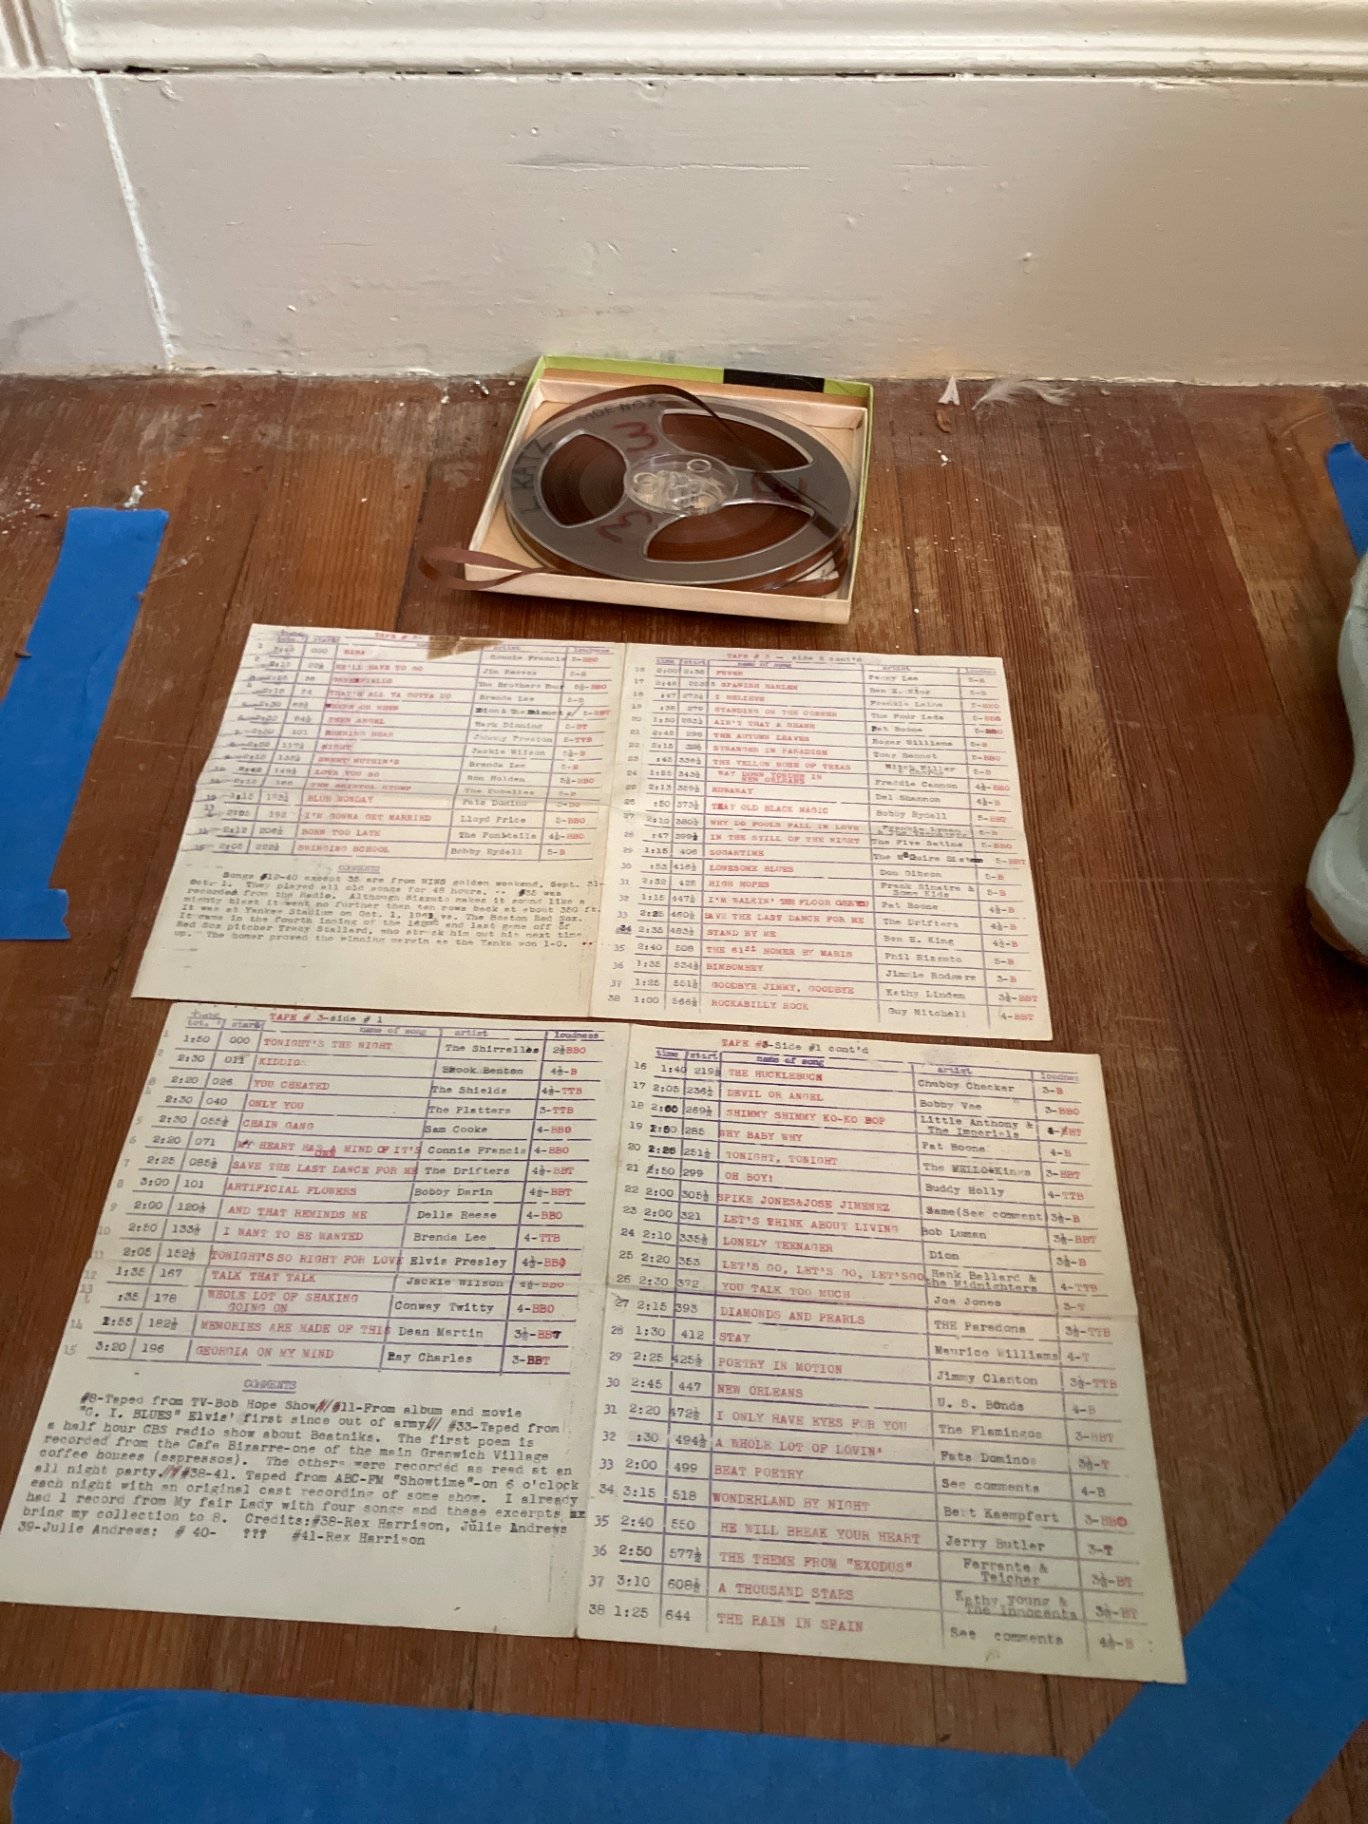 L KATZ
3
3
TAPE # 3-
time start name of song artist loudness
000 MAMA Connie Francis 5-BBO
HE'LL HAVE TO GO Jim Reeves 5-B
GREENFIELDS The Brothers Four
THAT'S ALL YA GOTTA DO Brenda Lee 5-B
WHERE OR WHEN Dion & the Belmonts 5-BBT
TEEN ANGEL Mark Dinning 5-BT
101 RUNNING BEAR Johnny Preston 5-TTB
NIGHT Jackie Wilson
SWEET NUTHIN'S Brenda Lee 5-B
LOVE YOU SO Ron Holden
THE BRISTOL STOMP The Dovells
1:15 BLUE MONDAY Fats Domino
192 I'M GONNA GET MARRIED Lloyd Price 5-BBO
2:12 206½ BORN TOO LATE The Ponitails 4½-BBO
2:05 222½ SWINGING SCHOOL Bobby Rydell 5-B
COMMENTS
Songs #12-40 except 35 are from WINS golden weekend, Sept. 31-
Oct. 1. They played all old songs for 48 hours. -- #35 was
recorded from the Radio. Although Rizzuto makes it sound like a
mighty blast it went no further then ten rows back at about 360 ft.
It was at Yankee Stadium on Oct. 1, 1961 vs. The Boston Red Sox.
It came in the fourth inning of the and last game off of
Red Sox pitcher Tracy Stallard, who struck him out his next time
up. The homer proved the winning margin as the Yanks won 1-0.
TAPE # 3 - side 2 cont'd
time start name of song artist loudness
16 2:00 FEVER Peggy Lee 5-B
17 2:45 SPANISH HARLEM Ben E. King 5-B
18 :47 I BELIEVE Frankie Laine 5-BBO
19 :38 279 STANDING ON THE CORNER The Four Lads 5-BBB
20 1:50 AIN'T THAT A SHAME Pat Boone
21 2:45 298 THE AUTUMN LEAVES Roger Williams 5-B
22 2:15 STRANGER IN PARADISE Tony Bennet 5-BBO
23 :45 THE YELLOW ROSE OF TEXAS Mitch Miller 5-B
24 1:55 343½ WAY DOWN YONDER IN NEW ORLEANS Freddie Cannon 4½-BBO
2:13 359½ RUNAWAY Del Shannon 4½-B
:50 373½ THAT OLD BLACK MAGIC Bobby Rydell 5-BBT
27 2:10 380½ WHY DO FOOLS FALL IN LOVE 5-B
28 :47 399½ IN THE STILL OF THE NIGHT The Five Satins 5-BBO
29 1:15 406 SUGARTIME The McGuire Sisters 5-BBT
30 :53 416½ LONESOME BLUES Don Gibson 5-B
31 2:32 425 HIGH HOPES Frank Sinatra & Some Kids 5-B
32 1:15 447½ I'M WALKIN' THE FLOOR OVER YOU Pat Boone 4½-B
33 2:25 460½ SAVE THE LAST DANCE FOR ME The Drifters 4½-B
34 2:35 483½ STAND BY ME Ben E. King 4½-B
35 2:40 508 THE 61st HOMER BY MARIS Phil Rizzuto 5-B
36 1:35 534½ BIMBOMBEY Jimmie Rodgers 3-B
37 1:25 551½ GOODBYE JIMMY, GOODBYE Kathy Linden 3½-BBT
38 1:00 566½ ROCKABILLY ROCK Guy Mitchell 4-BBT
TAPE # 3-side # 1
start name of song artist loudness
1 1:50 000 TONIGHT'S THE NIGHT The Shirrelles 2½BBO
2 2:30 011 KIDDIO Brook Benton 4½-B
2:20 026 YOU CHEATED The Shields 4½-TTB
2:30 040 ONLY YOU The Platters 3-TTB
5 2:30 055½ CHAIN GANG Sam Cooke 4-BBO
6 2:20 071 MY HEART HAS A MIND OF IT'S OWN Connie Francis 4-BBO
7 2:25 085½ SAVE THE LAST DANCE FOR ME The Drifters 4½-BBT
8 3:00 101 ARTIFICIAL FLOWERS Bobby Darin 4½-BBT
9 2:00 120½ AND THAT REMINDS ME Della Reese 4-BBO
10 2:50 133½ I WANT TO BE WANTED Brenda Lee 4-TTB
11 2:05 152½ TONIGHT'S SO RIGHT FOR LOVE Elvis Presley 4½-BBO
12 1:35 167 TALK THAT TALK Jackie Wilson 4½-BBO
13 :35 178 WHOLE LOT OF SHAKING GOING ON Conway Twitty 4-BBO
14 1:55 182½ MEMORIES ARE MADE OF THIS Dean Martin 3½-BBT
15 3:20 196 GEORGIA ON MY MIND Ray Charles 3-BBT
COMMENTS
#8-Taped from TV-Bob Hope Show/// #11-From album and movie
"G. I. BLUES" Elvis' first since out of army/// #33-Taped from
a half hour CBS radio show about Beatniks. The first poem is
recorded from the Cafe Bizarre-one of the main Grenwich Village
coffee houses (espressos). The others were recorded as read at an
all night party./// #38-41. Taped from ABC-FM "Showtime"-on 6 o'clock
each night with an original cast recording of some show. I already
had 1 record from My fair Lady with four songs and these excerpts
bring my collection to 8. Credits:#38-Rex Harrison, Julie Andrews
39-Julie Andrews: # 40- ??? #41-Rex Harrison
TAPE #3-Side #1 cont'd
time start name of song artist loudness
16 1:40 219½ THE HUCKLEBUCK Chubby Checker 3-B
17 2:05 236½ DEVIL OR ANGEL Bobby Vee 3-BBO
18 2:00 269½ SHIMMY SHIMMY KO-KO BOP Little Anthony & The Imperials
19 285 WHY BABY WHY Pat Boone 4-B
20 2:25 251½ TONIGHT, TONIGHT The MELLO-Kings 3-BBT
21 2:50 299 OH BOY! Buddy Holly 4-TTB
22 2:00 305½ SPIKE JONES&JOSE JIMENEZ Same(See comment) 3½-B
23 2:00 321 LET'S THINK ABOUT LIVING Bob Luman 3½-BBT
24 2:10 335½ LONELY TEENAGER Dion 3½-B
25 2:20 353 LET'S GO, LET'S GO, LET'SGO Hank Ballard & the Midnighters 4-TTB
26 2:30 372 YOU TALK TOO MUCH Joe Jones 3-T
27 2:15 393 DIAMONDS AND PEARLS THE Paradons 3½-TTB
28 1:30 412 STAY Maurice Williams 4-T
29 2:25 425½ POETRY IN MOTION Jimmy Clanton 3½-TTB
30 2:45 447 NEW ORLEANS U. S. Bonds 4-B
31 2:20 472½ I ONLY HAVE EYES FOR YOU The Flamingos 3-BBT
32 :30 494½ A WHOLE LOT OF LOVIN' Fats Domino 3½-T
33 2:00 499 BEAT POETRY See comments 4-B
34 3:15 518 WONDERLAND BY NIGHT Bert Kaempfert 3-BBO
35 2:40 550 HE WILL BREAK YOUR HEART Jerry Butler 3-T
36 2:50 577½ THE THEME FROM "EXODUS" Ferrante & Teicher 3½-BT
37 3:10 608½ A THOUSAND STARS Kathy Young & The Innocents 3½-BT
38 1:25 644 THE RAIN IN SPAIN See comments 4½-B